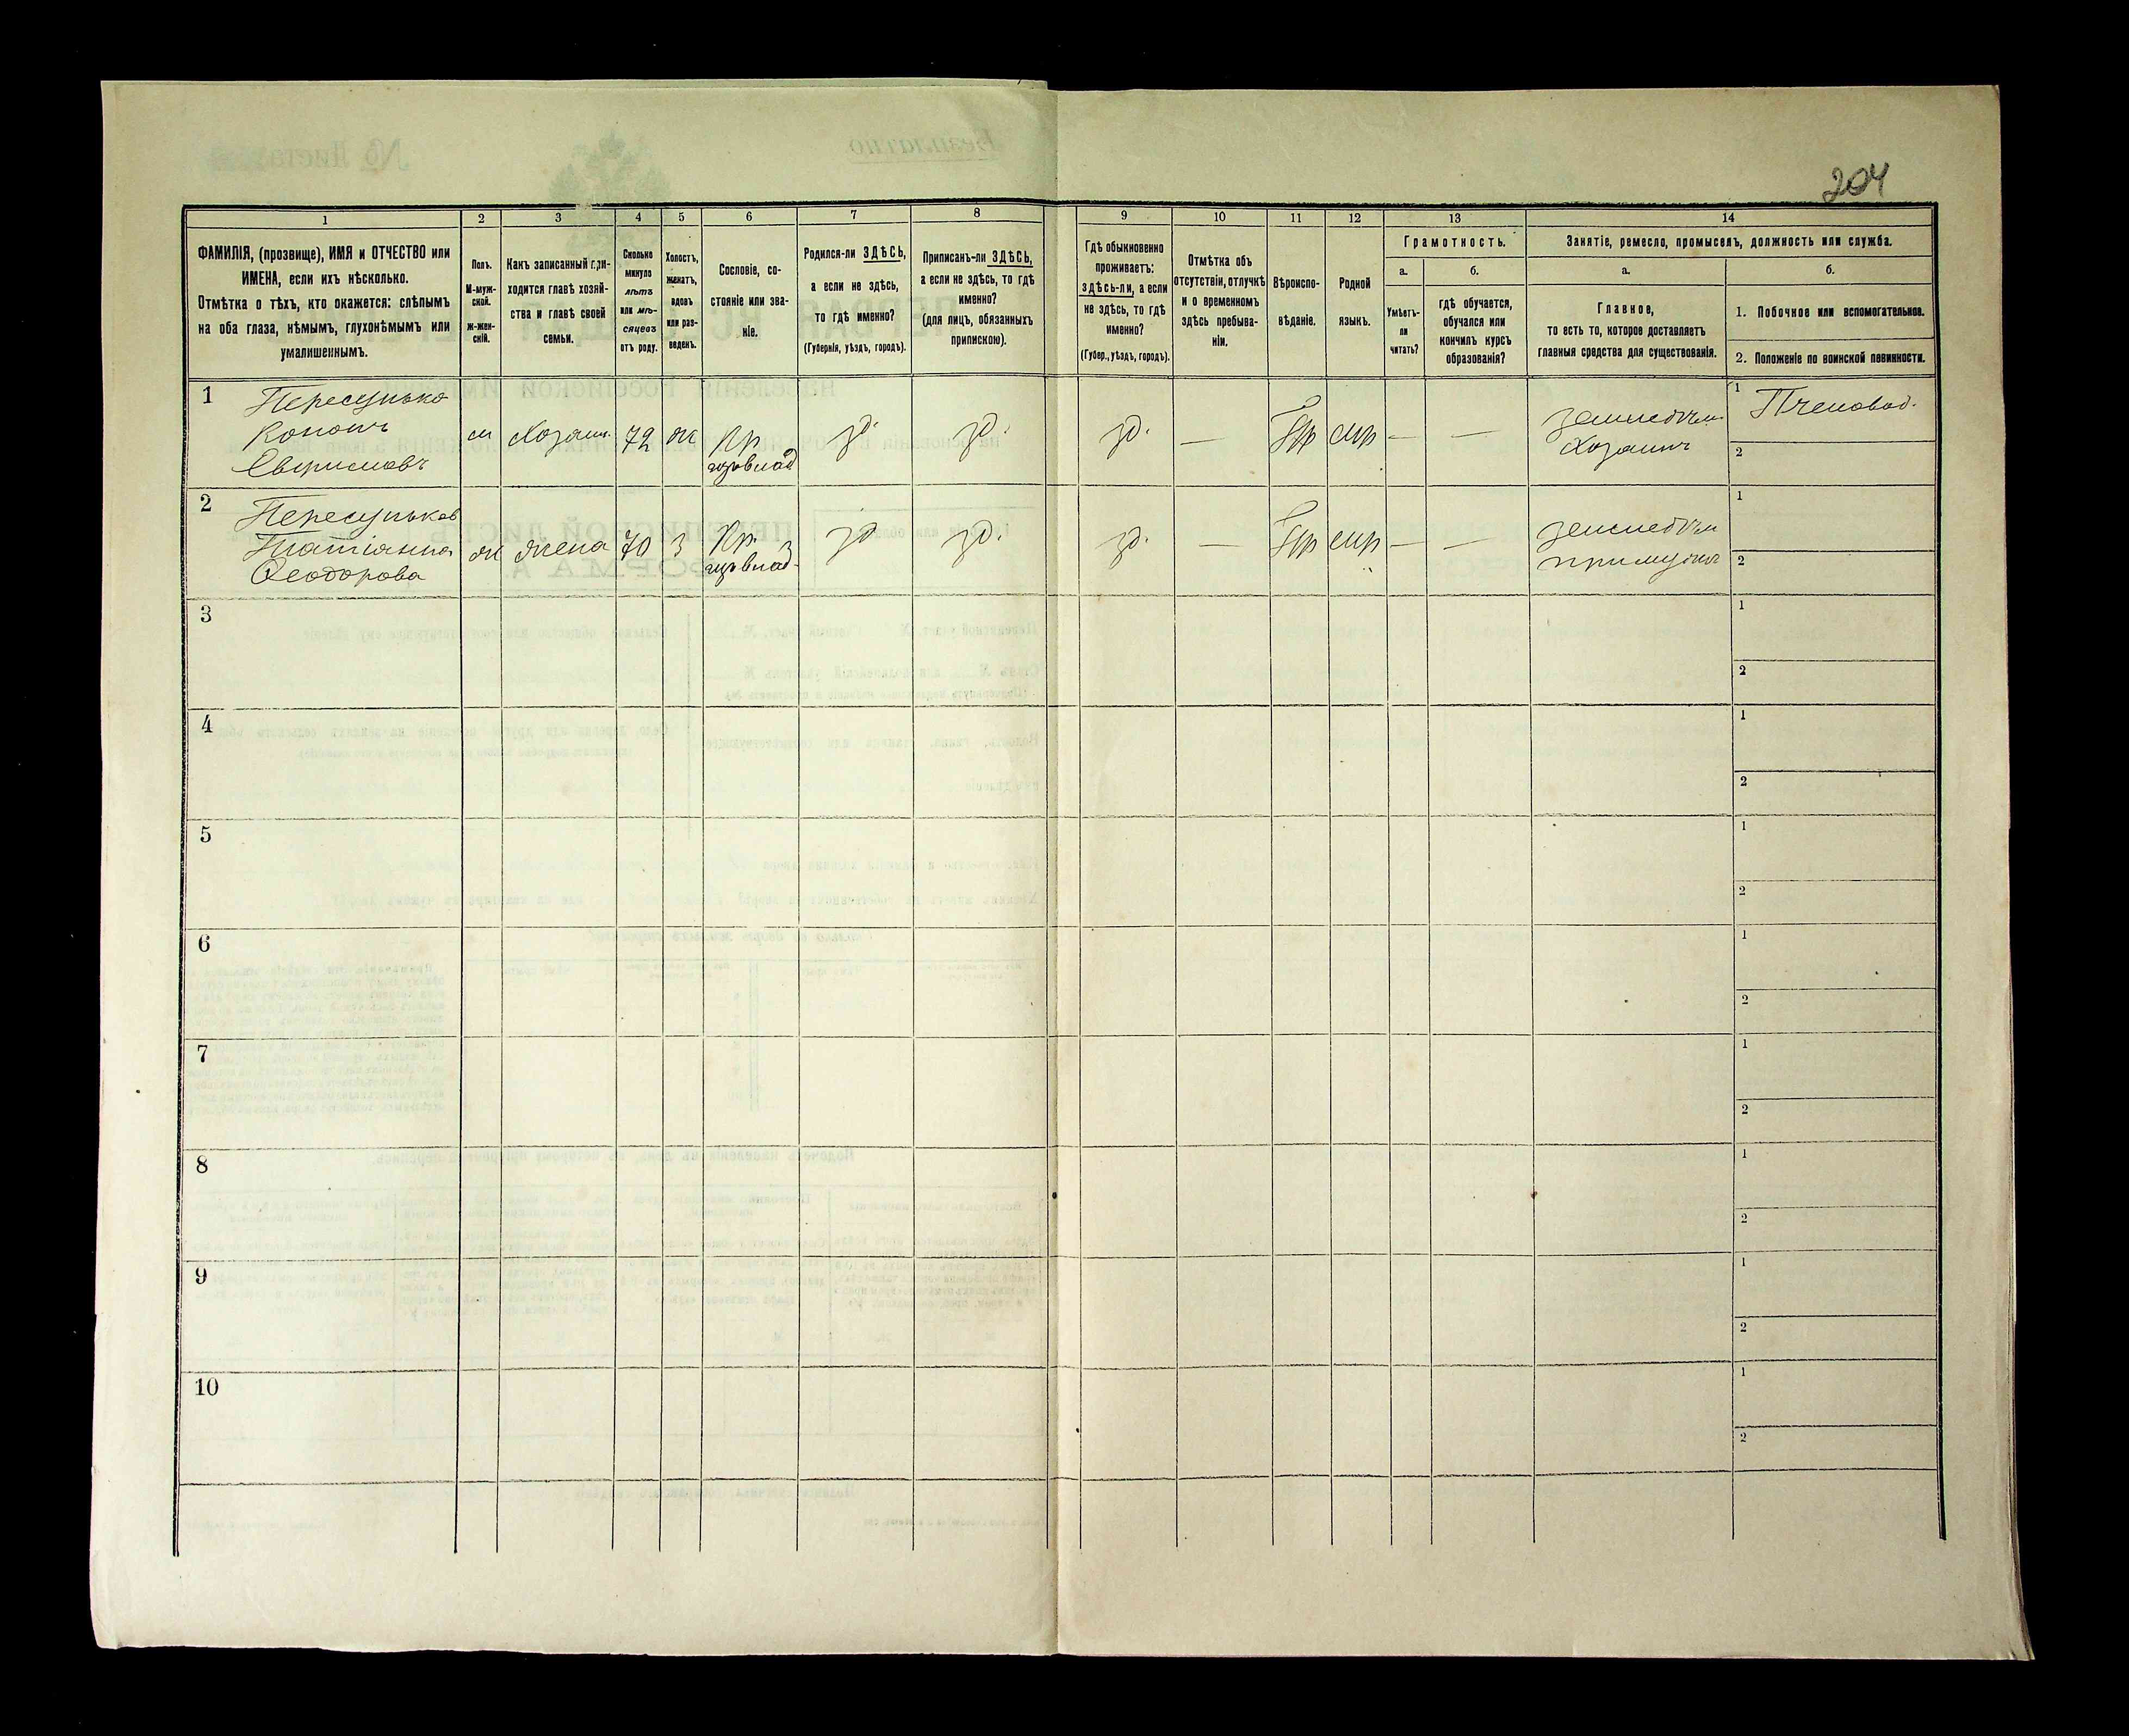 204
1
2
3
4
5
6
7
8
9
10
11
12
13
14
ФАМИЛІЯ, (прозвище), ИМЯ и ОТЧЕСТВО или
ИМЕНА, если ихъ нѣсколько.
Отмѣтка о тѣхъ, кто окажется: слѣпымъ
на оба глаза, нѣмымъ, глухонѣмымъ или
умалишеннымъ.
Полъ.
М-муж-
ской.
ж-жен-
скій.
Какъ записанный при-
ходится главѣ хозяй-
ства и главѣ своей
семьи.
Сколько
минуло
лѣтъ
или мѣ-
сяцевъ
отъ роду.
Холостъ,
женатъ,
вдовъ
или раз-
веденъ.
Сословіе, со-
стояніе или зва-
ніе.
Родился-ли ЗДѢСЬ,
а если не здѣсь,
то гдѣ именно?
(Губернія, уѣздъ, городъ).
Приписанъ-ли ЗДѢСЬ,
а если не здѣсь, то гдѣ
именно?
(для лицъ, обязанныхъ
припискою).
Гдѣ обыкновенно
проживаетъ:
здѣсь-ли, а если
не здѣсь, то гдѣ
именно?
(Губер., уѣздъ, городъ).
Отмѣтка объ
отсутствіи, отлучкѣ
и о временномъ
здѣсь пребыва-
ніи.
Вѣроиспо-
вѣданіе.
Родной
языкъ.
Грамотность.
а.
Умѣетъ-
ли
читать?
б.
гдѣ обучается,
обучался или
кончилъ курсъ
образованія?
Занятіе, ремесло, промыселъ, должность или служба.
а.
Главное,
то есть то, которое доставляетъ
главныя средства для существованія.
б.
1. Побочное или вспомогательное.
2. Положеніе по воинской повинности.
1
Пересунько
Кононъ
м
Хозяин.
72
ж
Кр
зд.
зд.
зд.
—
Пр
мр
—
—
Хозяинъ
1
Пчеловод.
2
2
Татіанна
Феодорова
ж
жена
70
з
Кр.
зд
зд.
зд.
—
Пр
мр
—
—
1
2
3
1
2
4
1
2
5
1
2
6
1
2
7
1
2
8
1
2
9
1
2
10
1
2